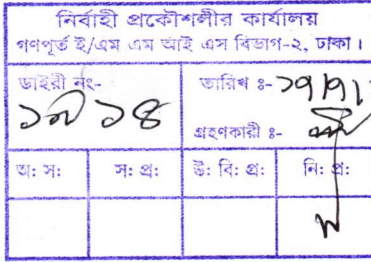 নির্বাহী প্রকৌশলীর কার্যালয়
গণপূর্ত ই/এম এম আই এস বিভাগ-২, ঢাকা।
ডাইরী নং-
তারিখ ঃ- ১৭/৭/
গ্রহণকারী ঃ-
অ: স:
স: প্র:
উ: বি: প্র:
নি: প্র: